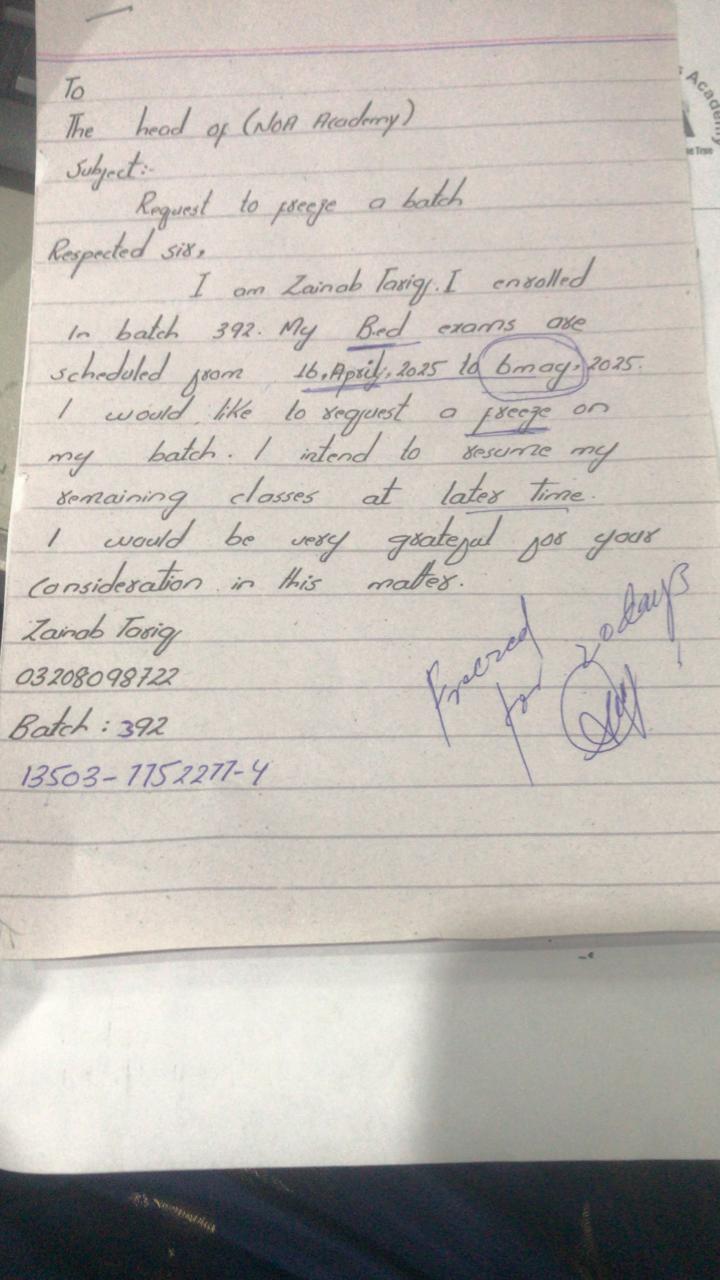 To
The head of (NOA Academy)
Subject:-
Request to freeze a batch
Respected sir,
I am Zainab Tariq. I enrolled
In batch 392. My Bed exams are
scheduled from 16, April, 2025 to 6 may, 2025.
I would like to request a freeze on
my batch. I intend to resume my
remaining classes at later time.
I would be very grateful for your
consideration in this matter.
Zainab Tariq
03208098722
Batch : 392
13503-7752277-4
for 20 days
Academy